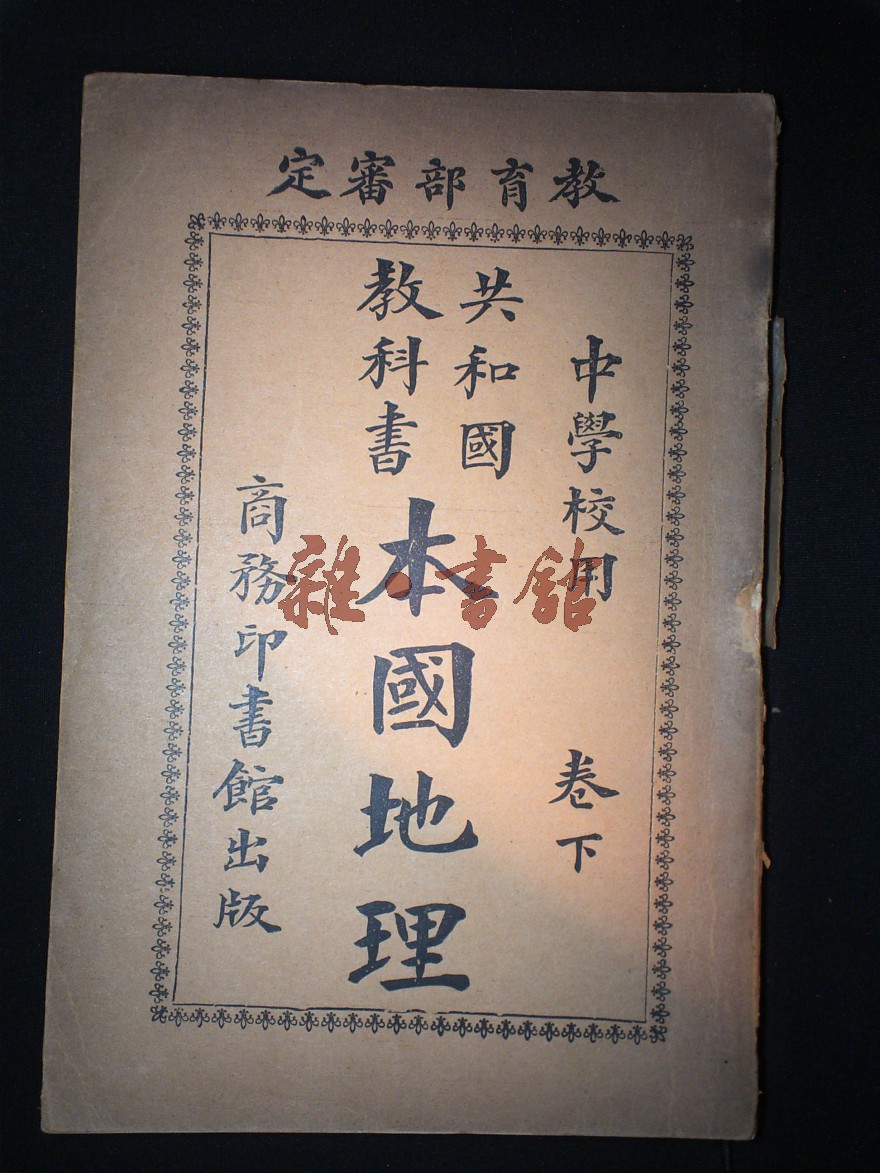 教育部審定
中學校用　卷下
共和國
教科書
本國地理
商務印書館出版
雜·書館